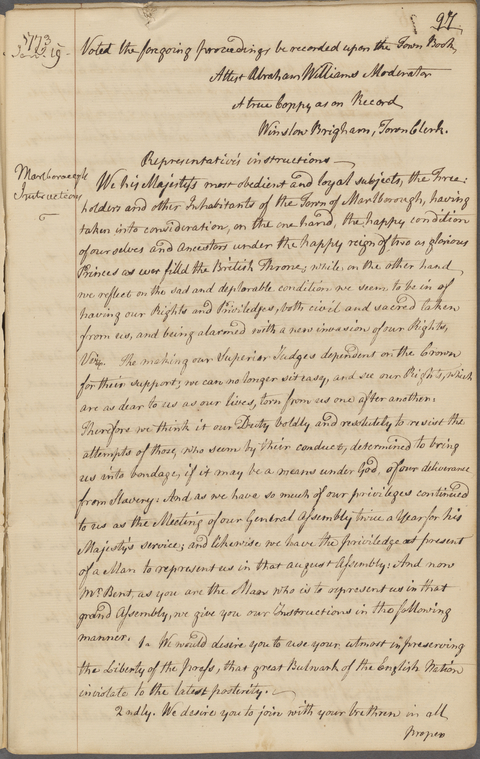 97
1773
Jan. 19
Voted the foregoing proceedings be recorded upon the Town Book,
Attest Abraham Williams Moderator
A true Coppy as on Record
Winslow Brigham, Town Clerk.
Representative's instructions
Marlborough
Instructions
We his Majesty's most obedient and loyal subjects, the Free:
holders and other Inhabitants of the Town of Marlborough, having
taken into consideration, on the one hand, the happy condition
of ourselves and Ancestors under the happy reign of two as glorious
Princes as ever fill'd the British Throne; while, on the other hand,
we reflect on the sad and deplorable condition we seem to be in of
having our Rights and Priviledges, both civil and sacred taken
from us, and being alarmed with a new invasion of our Rights,
Viz. The making our Superior Judges dependent on the Crown
for their support; we can no longer sit easy, and see our Rights, which
are as dear to us as our lives, torn from us one after another.
Therefore we think it our Duty boldly and resolutely to resist the
attempts of those, who seem by their conduct, determined to bring
us into bondage, if it may be a means under God, of our deliverance
from Slavery: And as we have so much of our privileges continued
to us as the Meeting of our General Assembly twice a Year for his
Majesty's service; and likewise we have the priviledge at present
of a Man to represent us in that august Assembly: And now
Mr Bent, as you are the Man who is to represent us in that
grand Assembly, we give you our Instructions in the following
manner.
1. We would desire you to use your utmost in preserving
the Liberty of the Press, that great Bulwark of the English Nation
inviolate to the latest posterity.
2ndly. We desire you to join with your brethren in all
proper